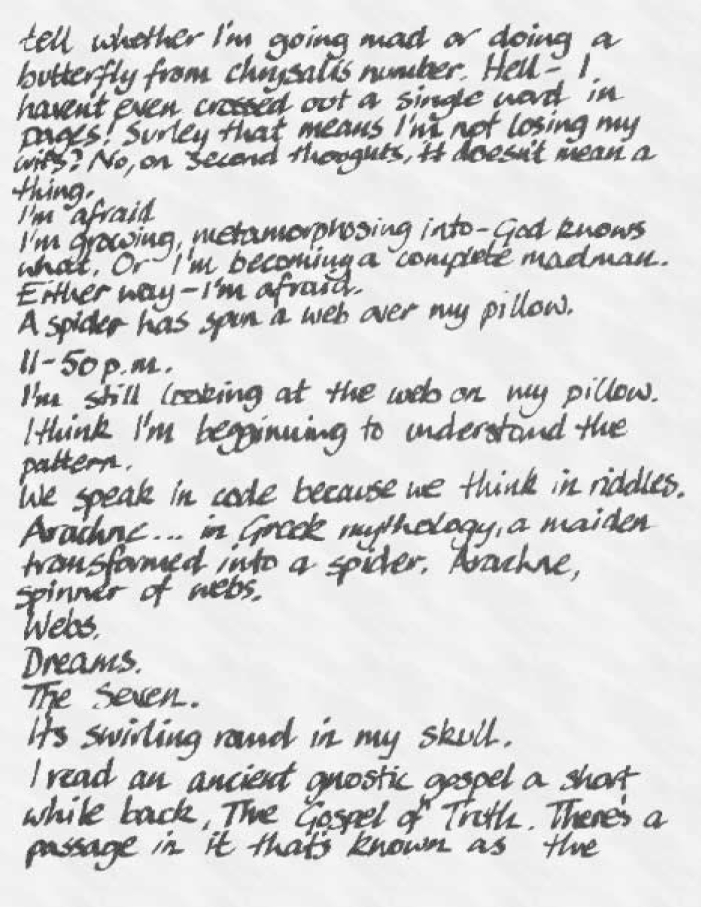 tell whether I'm going mad or doing a
butterfly from chrysalis number. Hell - I
haven't even crossed out a single word in
pages! Surley that means I'm not losing my
wits? No, on second thooguts, it doesn't mean a
thing.
I'm afraid
I'm growing, metamorphosing into - God knows
what. Or I'm becoming a complete madman.
Either way - I'm afraid.
A spider has spun a web over my pillow.
11-50 p.m.
I'm still looking at the web on my pillow.
I think I'm begginning to understand the
pattern.
We speak in code because we think in riddles.
Arachne... in Greek mythology, a maiden
transformed into a spider. Arachne,
spinner of webs.
Webs.
Dreams.
The Seven.
Its swirling round in my skull.
I read an ancient gnostic gospel a short
while back, The Gospel of Truth. There's a
passage in it that's known as the